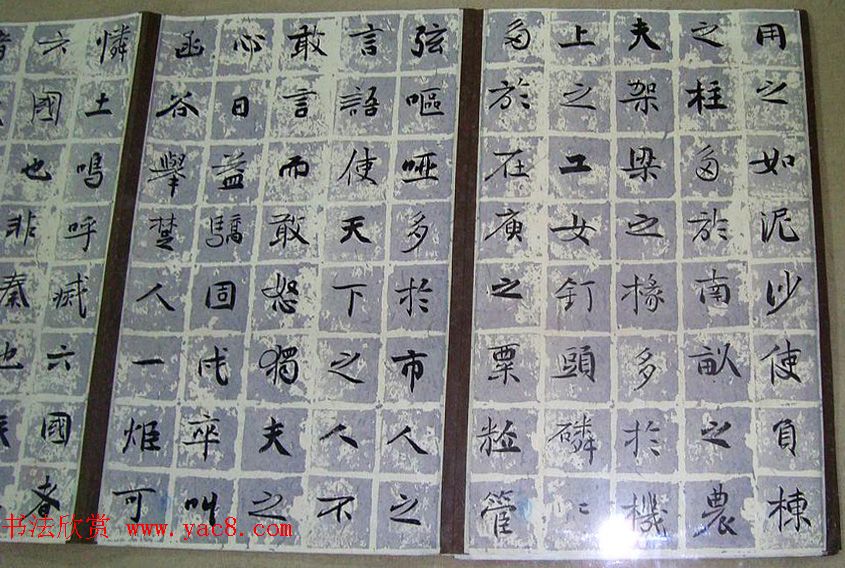 用之如泥沙使負棟
之柱多於南畝之農
夫架梁之椽多於機
上之工女釘頭磷々
多於在庾之粟粒管
弦嘔啞多於市人之
言語使天下之人不
敢言而敢怒獨夫之
心日益驕固戍卒叫
函谷舉楚人一炬可
憐土嗚呼滅六國者
六國也非秦也族
书法欣赏 www.yac8.com